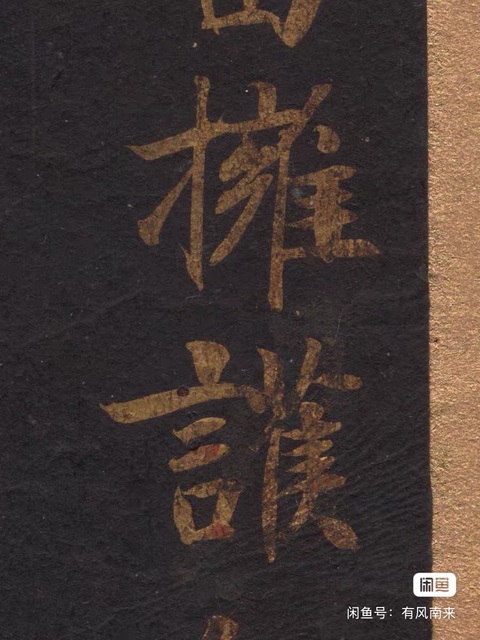 擁
護
闲鱼
闲鱼号：有风南来